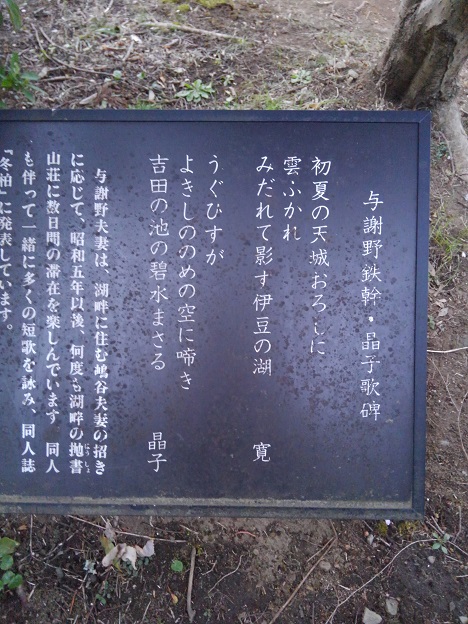 与謝野鉄幹・晶子歌碑
初夏の天城おろしに
雲ふかれ
みだれて影す伊豆の湖　寛
うぐひすが
よきしののめの空に啼き
吉田の池の碧水まさる　晶子
与謝野夫妻は、湖畔に住む嶋谷夫妻の招き
に応じて、昭和五年以後、何度も湖畔の抛書
山荘に数日間の滞在を楽しんでいます　同人
も伴って一緒に多くの短歌を詠み、同人誌
『冬柏』に発表しています。